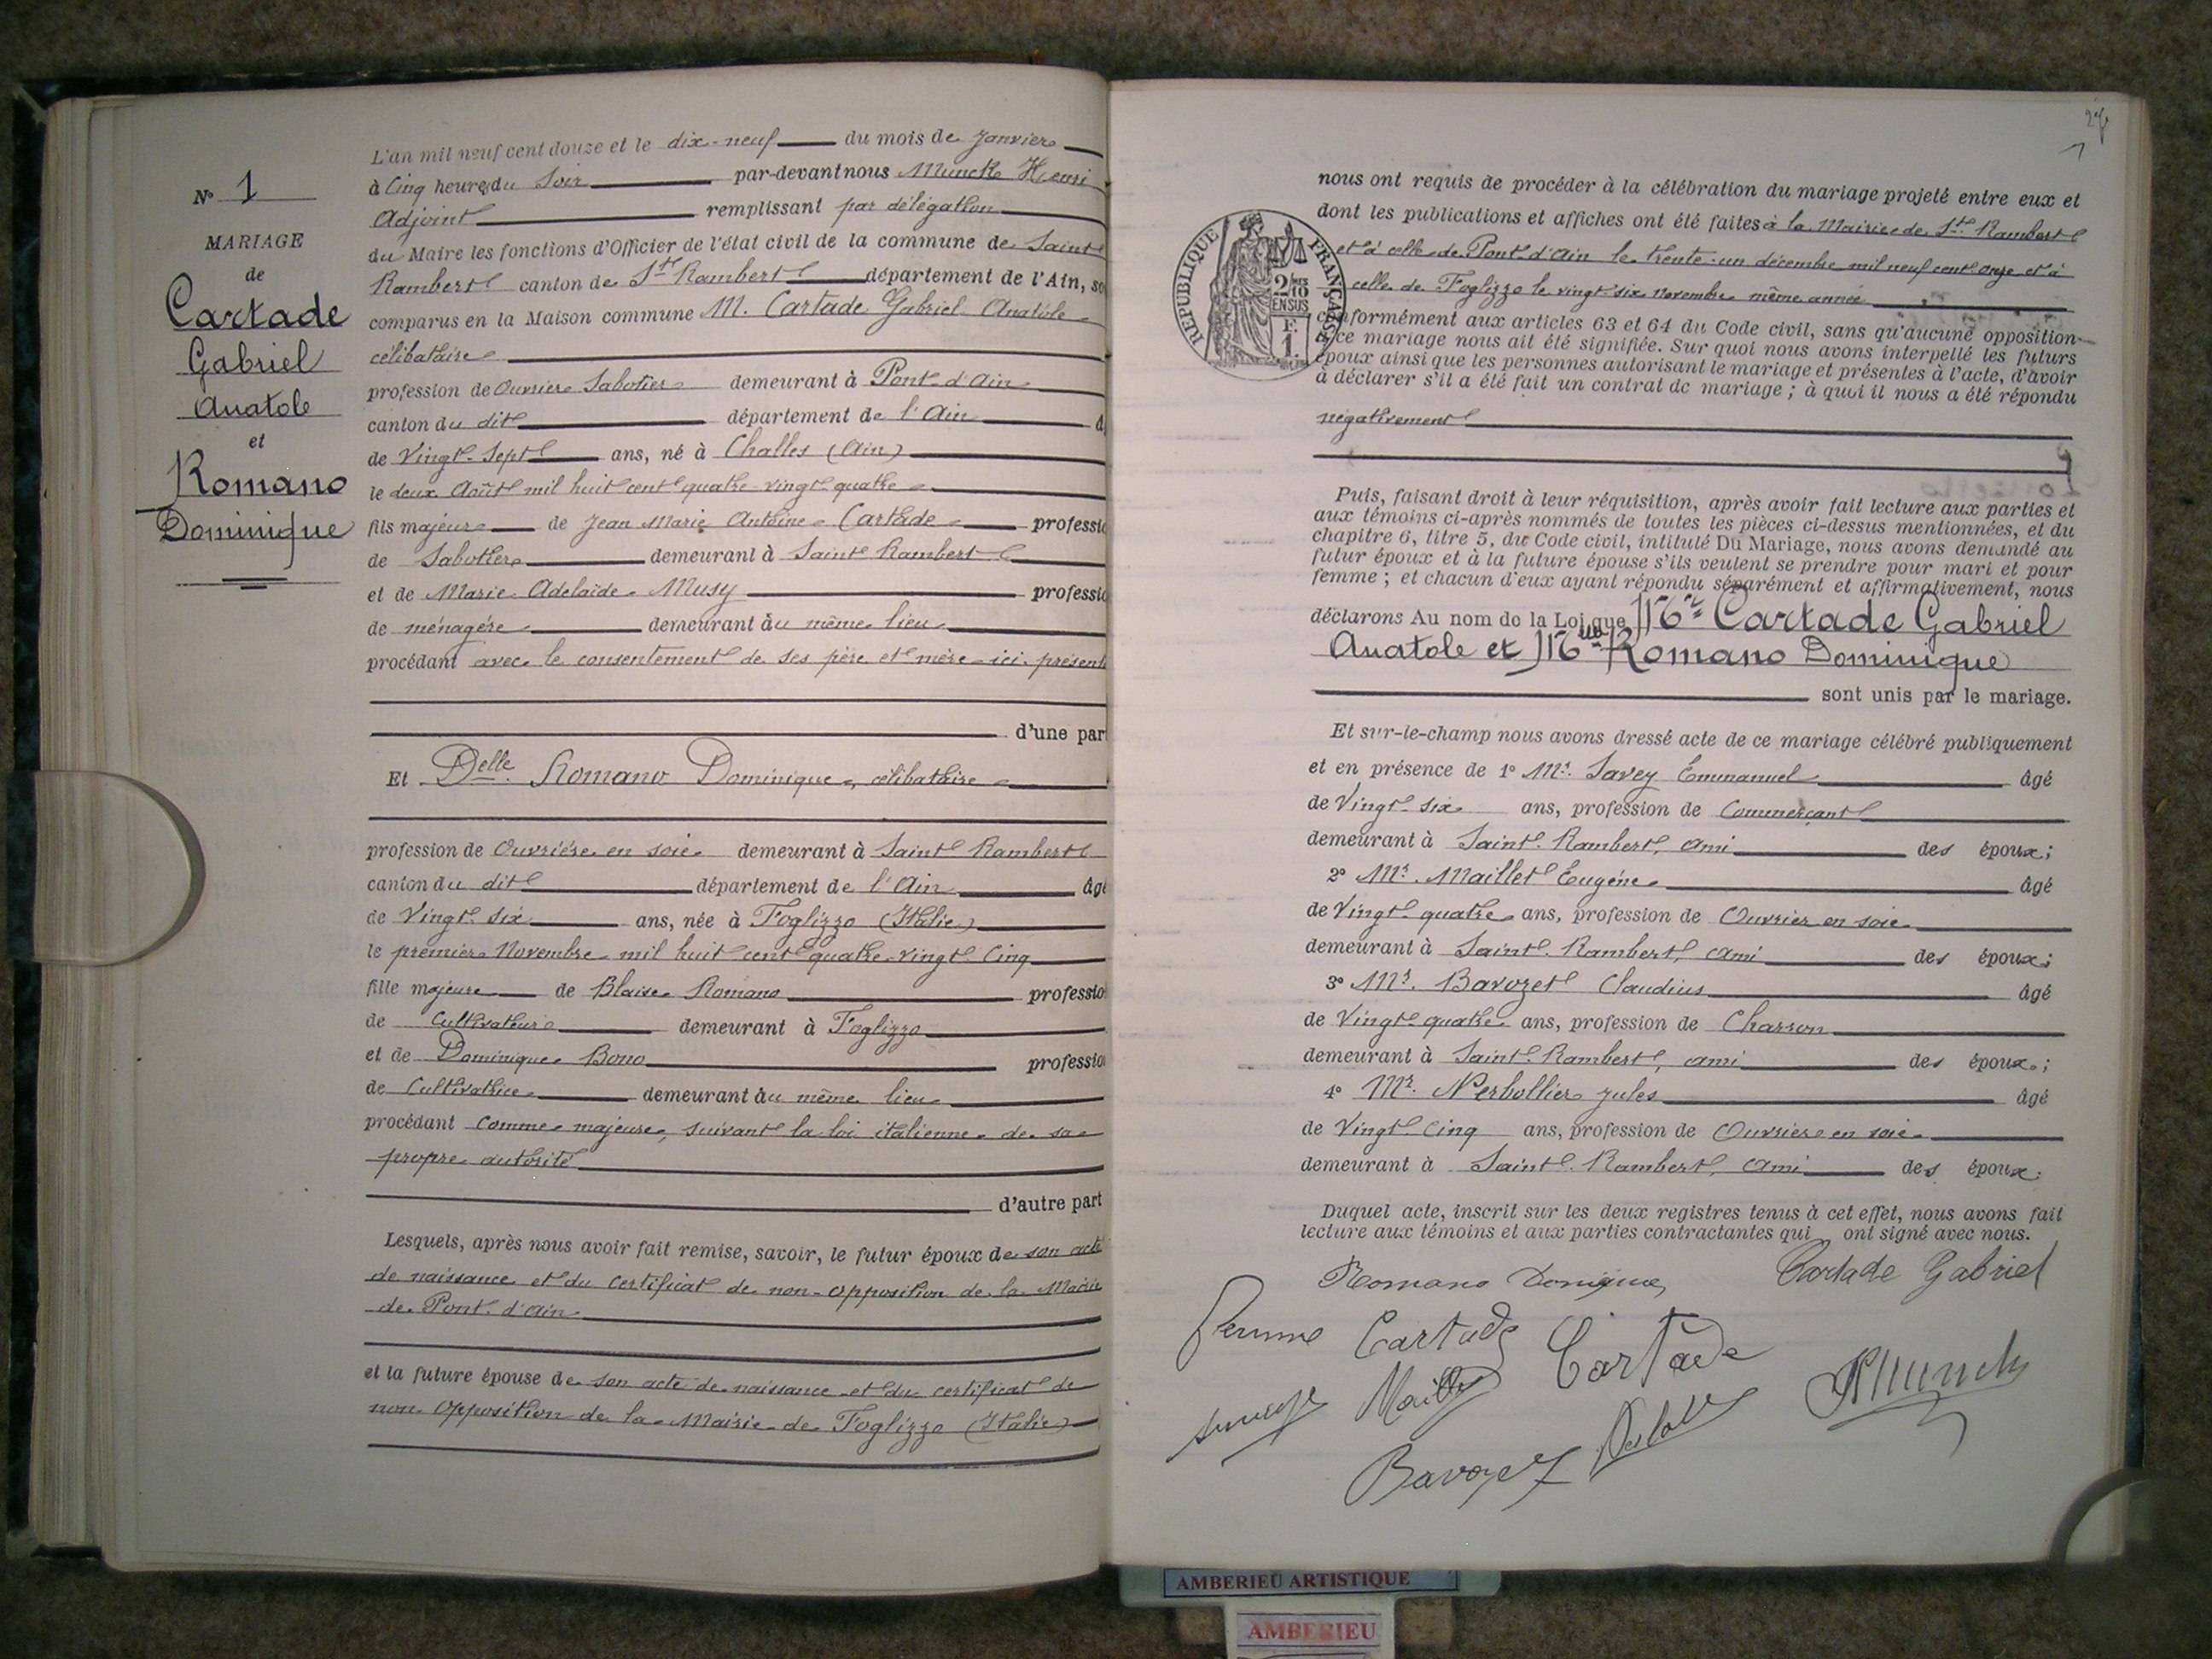 N° 1
MARIAGE
de
Cartade
Gabriel
Anatole
et
Romano
Dominique
L'an mil neuf cent douze et le dix-neuf du mois de Janvier
à Cinq heures du Soir par-devant nous Munck Henri
Adjoint remplissant par délégation
du Maire les fonctions d'Officier de l'état civil de la commune de Saint
Rambert canton de St Rambert département de l'Ain, so
comparus en la Maison commune M. Cartade Gabriel Anatole
célibataire
profession de Ouvrier Sabotier demeurant à Pont-d'Ain
canton du dit département de l'Ain
de Vingt-Sept ans, né à Challes (Ain)
le deux Août mil huit cent quatre-vingt-quatre
fils majeur de Jean Marie Antoine Cartade professio
de Sabotier demeurant à Saint Rambert
et de Marie Adelaïde Musy professio
de ménagère demeurant au même lieu
procédant avec le consentement de ses père et mère ici présent
d'une par
Et Delle Romano Dominique, célibataire
profession de Ouvrière en soie demeurant à Saint Rambert
canton du dit département de l'Ain âgé
de Vingt-six ans, née à Foglizzo (Italie)
le premier Novembre mil huit cent quatre-vingt-Cinq
fille majeure de Blaise Romano professio
de Cultivateur demeurant à Foglizzo
et de Dominique Bono professio
de Cultivatrice demeurant au même lieu
procédant comme majeure, suivant la loi italienne de sa
propre autorité
d'autre part
Lesquels, après nous avoir fait remise, savoir, le futur époux de son acte
de naissance et du certificat de non-opposition de la Mairie
de Pont-d'Ain
et la future épouse de son acte de naissance et du certificat de
non opposition de la Mairie de Foglizzo (Italie)
nous ont requis de procéder à la célébration du mariage projeté entre eux et
dont les publications et affiches ont été faites à la Mairie de St Rambert
et à celle de Pont-d'Ain le trente-un décembre mil neuf cent onze et à
celle de Foglizzo le vingt-six novembre même année
REPUBLIQUE FRANÇAISE
2/10
EN SUS
F.
1.
conformément aux articles 63 et 64 du Code civil, sans qu'aucune opposition
à ce mariage nous ait été signifiée. Sur quoi nous avons interpellé les futurs
époux ainsi que les personnes autorisant le mariage et présentes à l'acte, d'avoir
à déclarer s'il a été fait un contrat de mariage ; à quoi il nous a été répondu
négativement
Puis, faisant droit à leur réquisition, après avoir fait lecture aux parties et
aux témoins ci-après nommés de toutes les pièces ci-dessus mentionnées, et du
chapitre 6, titre 5, du Code civil, intitulé Du Mariage, nous avons demandé au
futur époux et à la future épouse s'ils veulent se prendre pour mari et pour
femme ; et chacun d'eux ayant répondu séparément et affirmativement, nous
déclarons Au nom de la Loi que Mr Cartade Gabriel
Anatole et Mlle Romano Dominique
sont unis par le mariage.
Et sur-le-champ nous avons dressé acte de ce mariage célébré publiquement
et en présence de 1° Mr. Savey Emmanuel âgé
de Vingt-six ans, profession de Commerçant
demeurant à Saint-Rambert, ami des époux ;
2° Mr. Maillet Eugène âgé
de Vingt-quatre ans, profession de Ouvrier en soie
demeurant à Saint-Rambert, ami des époux ;
3° Mr. Bavozet Claudius âgé
de Vingt-quatre ans, profession de Charron
demeurant à Saint-Rambert, ami des époux ;
4° Mr. Nerbollier Jules âgé
de Vingt-Cinq ans, profession de Ouvrier en soie
demeurant à Saint-Rambert, ami des époux.
Duquel acte, inscrit sur les deux registres tenus à cet effet, nous avons fait
lecture aux témoins et aux parties contractantes qui ont signé avec nous.
Romano Donique Cartade Gabriel
femme Cartade Cartade
Munck
Bavozet
AMBERIEU ARTISTIQUE
AMBERIEU